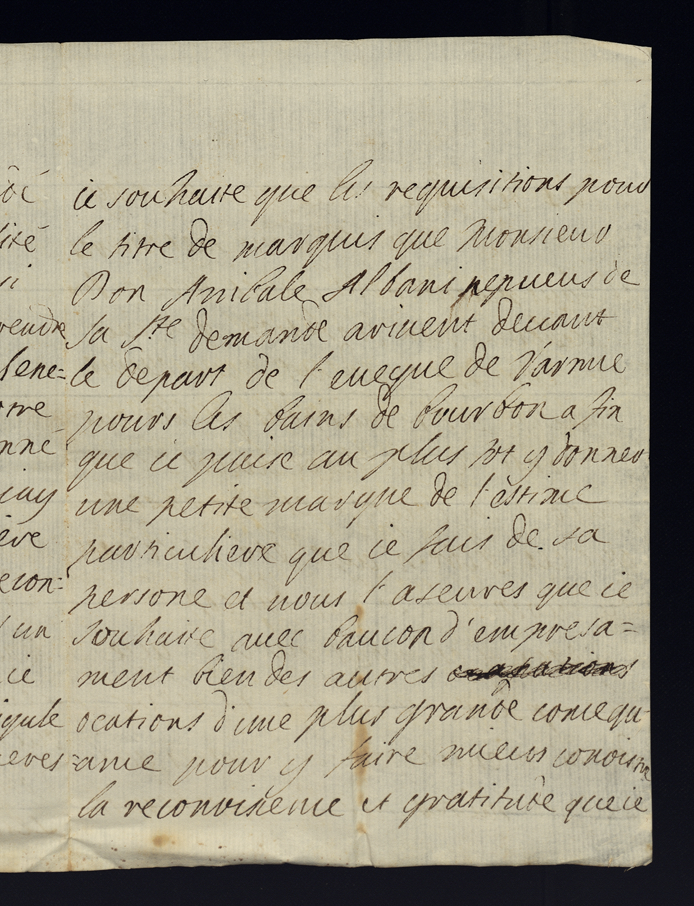 ie souhaite que les requisitions pour
le titre de marquis que Monsieur
Don Anibale Albani nepueus de
sa Ste demande arivent deuant
le depart de l'eueque de Varmie
pours les bains de bourbon a fin
que ie puise au plus tot y donner
une petite marque de l'estime
particuliere que ie fais de sa
persone et uous l'aseures que ie
souhaite auec baucou d'empresa=
ment bien des autres
ocations d'une plus grande consequ-
ance pour y faire mieus conoistre
la reconoisence et gratitude que ie